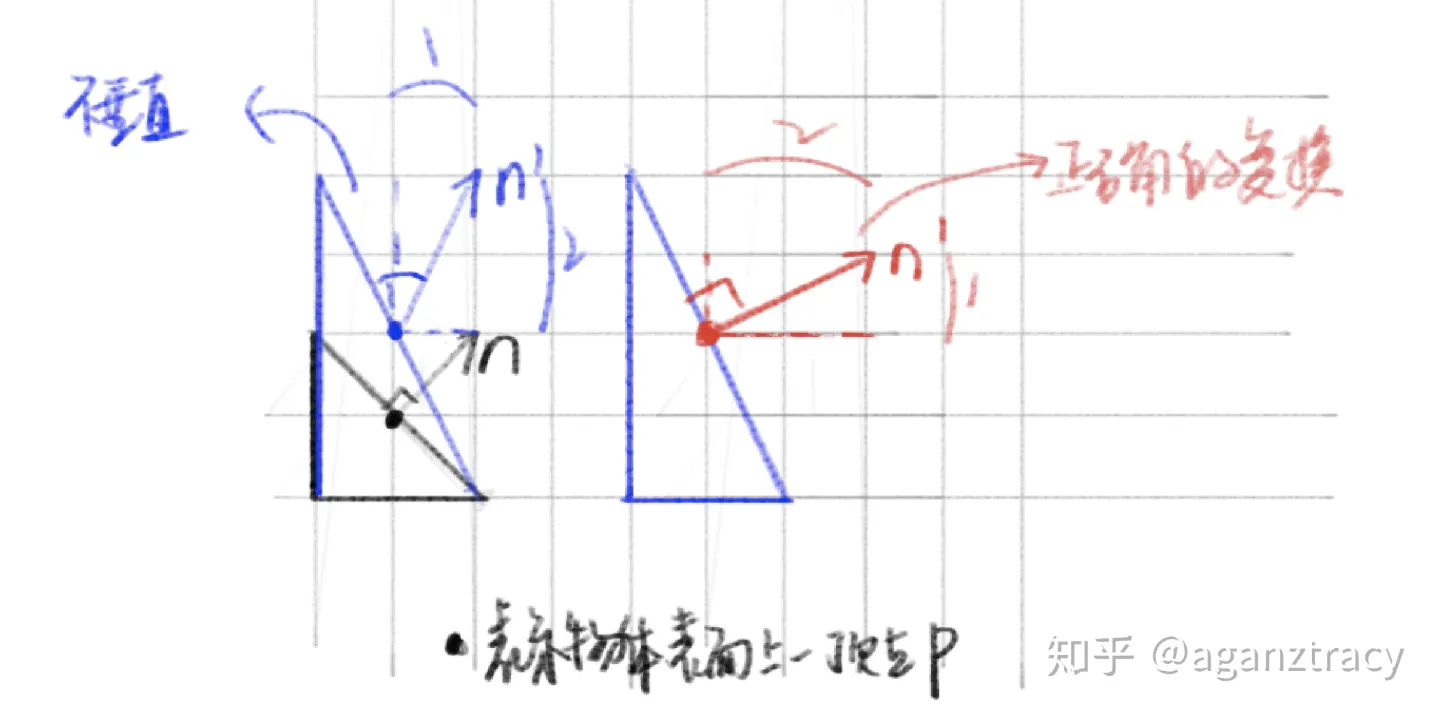 1
不垂直
n'
2
n
2
正确的变换
n'
1
• 表示物体表面上一顶点P
知乎 @aganztracy